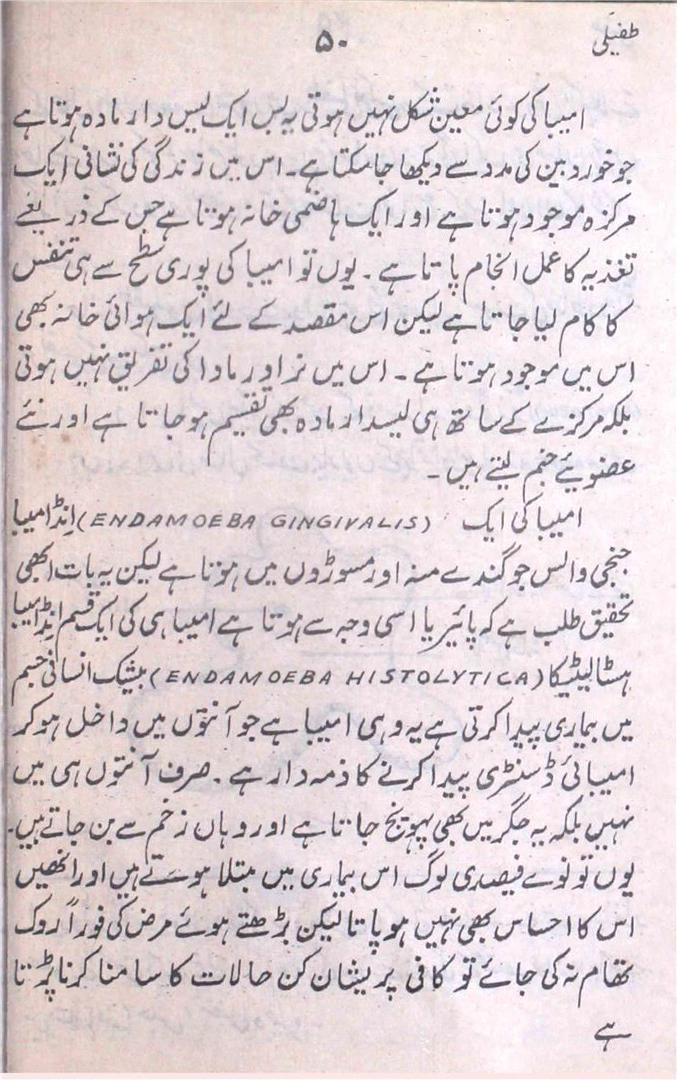 طفیلی
۵۰
امیبا کی کوئی معین شکل نہیں ہوتی یہ بس ایک لیس دار مادہ ہوتا ہے
جو خوردبین کی مدد سے دیکھا جا سکتا ہے۔ اس میں زندگی کی نشانی ایک
مرکزہ موجود ہوتا ہے اور ایک ہاضمی خانہ ہوتا ہے جس کے ذریعے
تغذیہ کا عمل انجام پاتا ہے۔ یوں تو امیبا کی پوری سطح سے ہی تنفس
کا کام لیا جاتا ہے لیکن اس مقصد کے لئے ایک ہوائی خانہ بھی
اس میں موجود ہوتا ہے۔ اس میں نر اور مادا کی تفریق نہیں ہوتی
بلکہ مرکزے کے ساتھ ہی لیسدار مادہ بھی تقسیم ہو جاتا ہے اور نئے
عضویئے جنم لیتے ہیں۔
امیبا کی ایک (ENDAMOEBA GINGIVALIS) اِنڈامیبا
جنجی والس جو گندے منہ اور مسوڑوں میں ہوتا ہے لیکن یہ بات ابھی
تحقیق طلب ہے کہ پائیریا اسی وجہ سے ہوتا ہے امیبا ہی کی ایک قسم اِنڈامیبا
ہسٹالیٹیکا (ENDAMOEBA HISTOLYTICA) بیشک انسانی جسم
میں بیماری پیدا کرتی ہے یہ وہی امیبا ہے جو آنتوں میں داخل ہو کر
امیبائی ڈسنٹری پیدا کرنے کا ذمہ دار ہے۔ صرف آنتوں ہی میں
نہیں بلکہ یہ جگر میں بھی پہونچ جاتا ہے اور وہاں زخم سے بن جاتے ہیں۔
یوں تو نوے فیصدی لوگ اس بیماری میں مبتلا ہوتے ہیں اور انھیں
اس کا احساس بھی نہیں ہو پاتا لیکن بڑھتے ہوئے مرض کی فوراً روک
تھام نہ کی جائے تو کافی پریشان کن حالات کا سامنا کرنا پڑتا
ہے